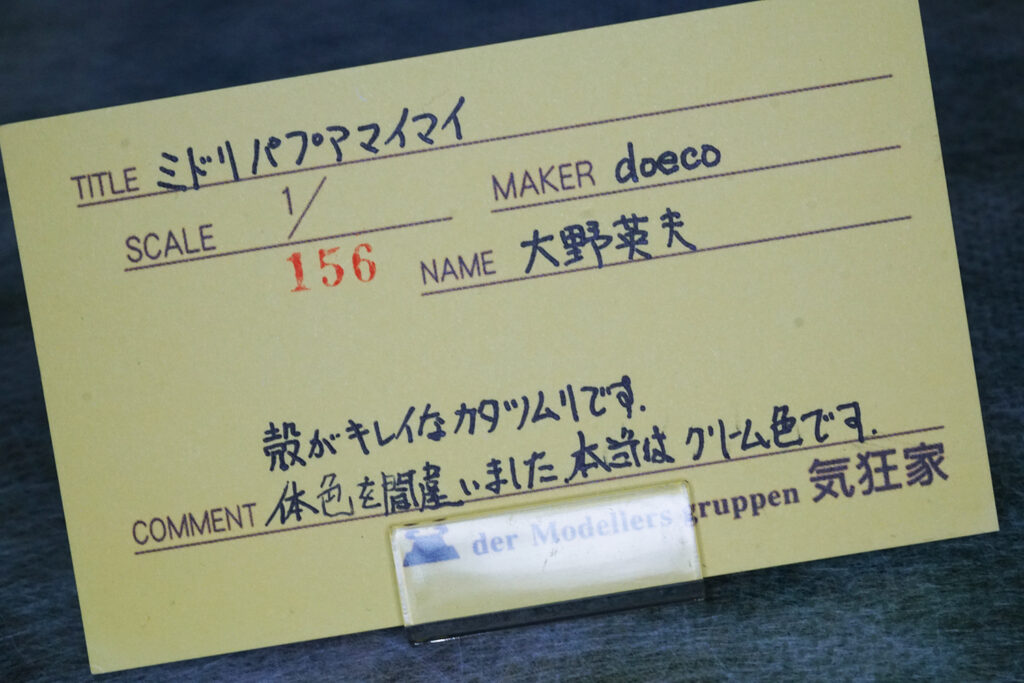 TITLE ミドリパプアマイマイ
SCALE 1/
MAKER doeco
156
NAME 大野英夫
殻がキレイなカタツムリです.
COMMENT 体色を間違いました.本当は クリーム色です.
der Modellers gruppen 気狂家